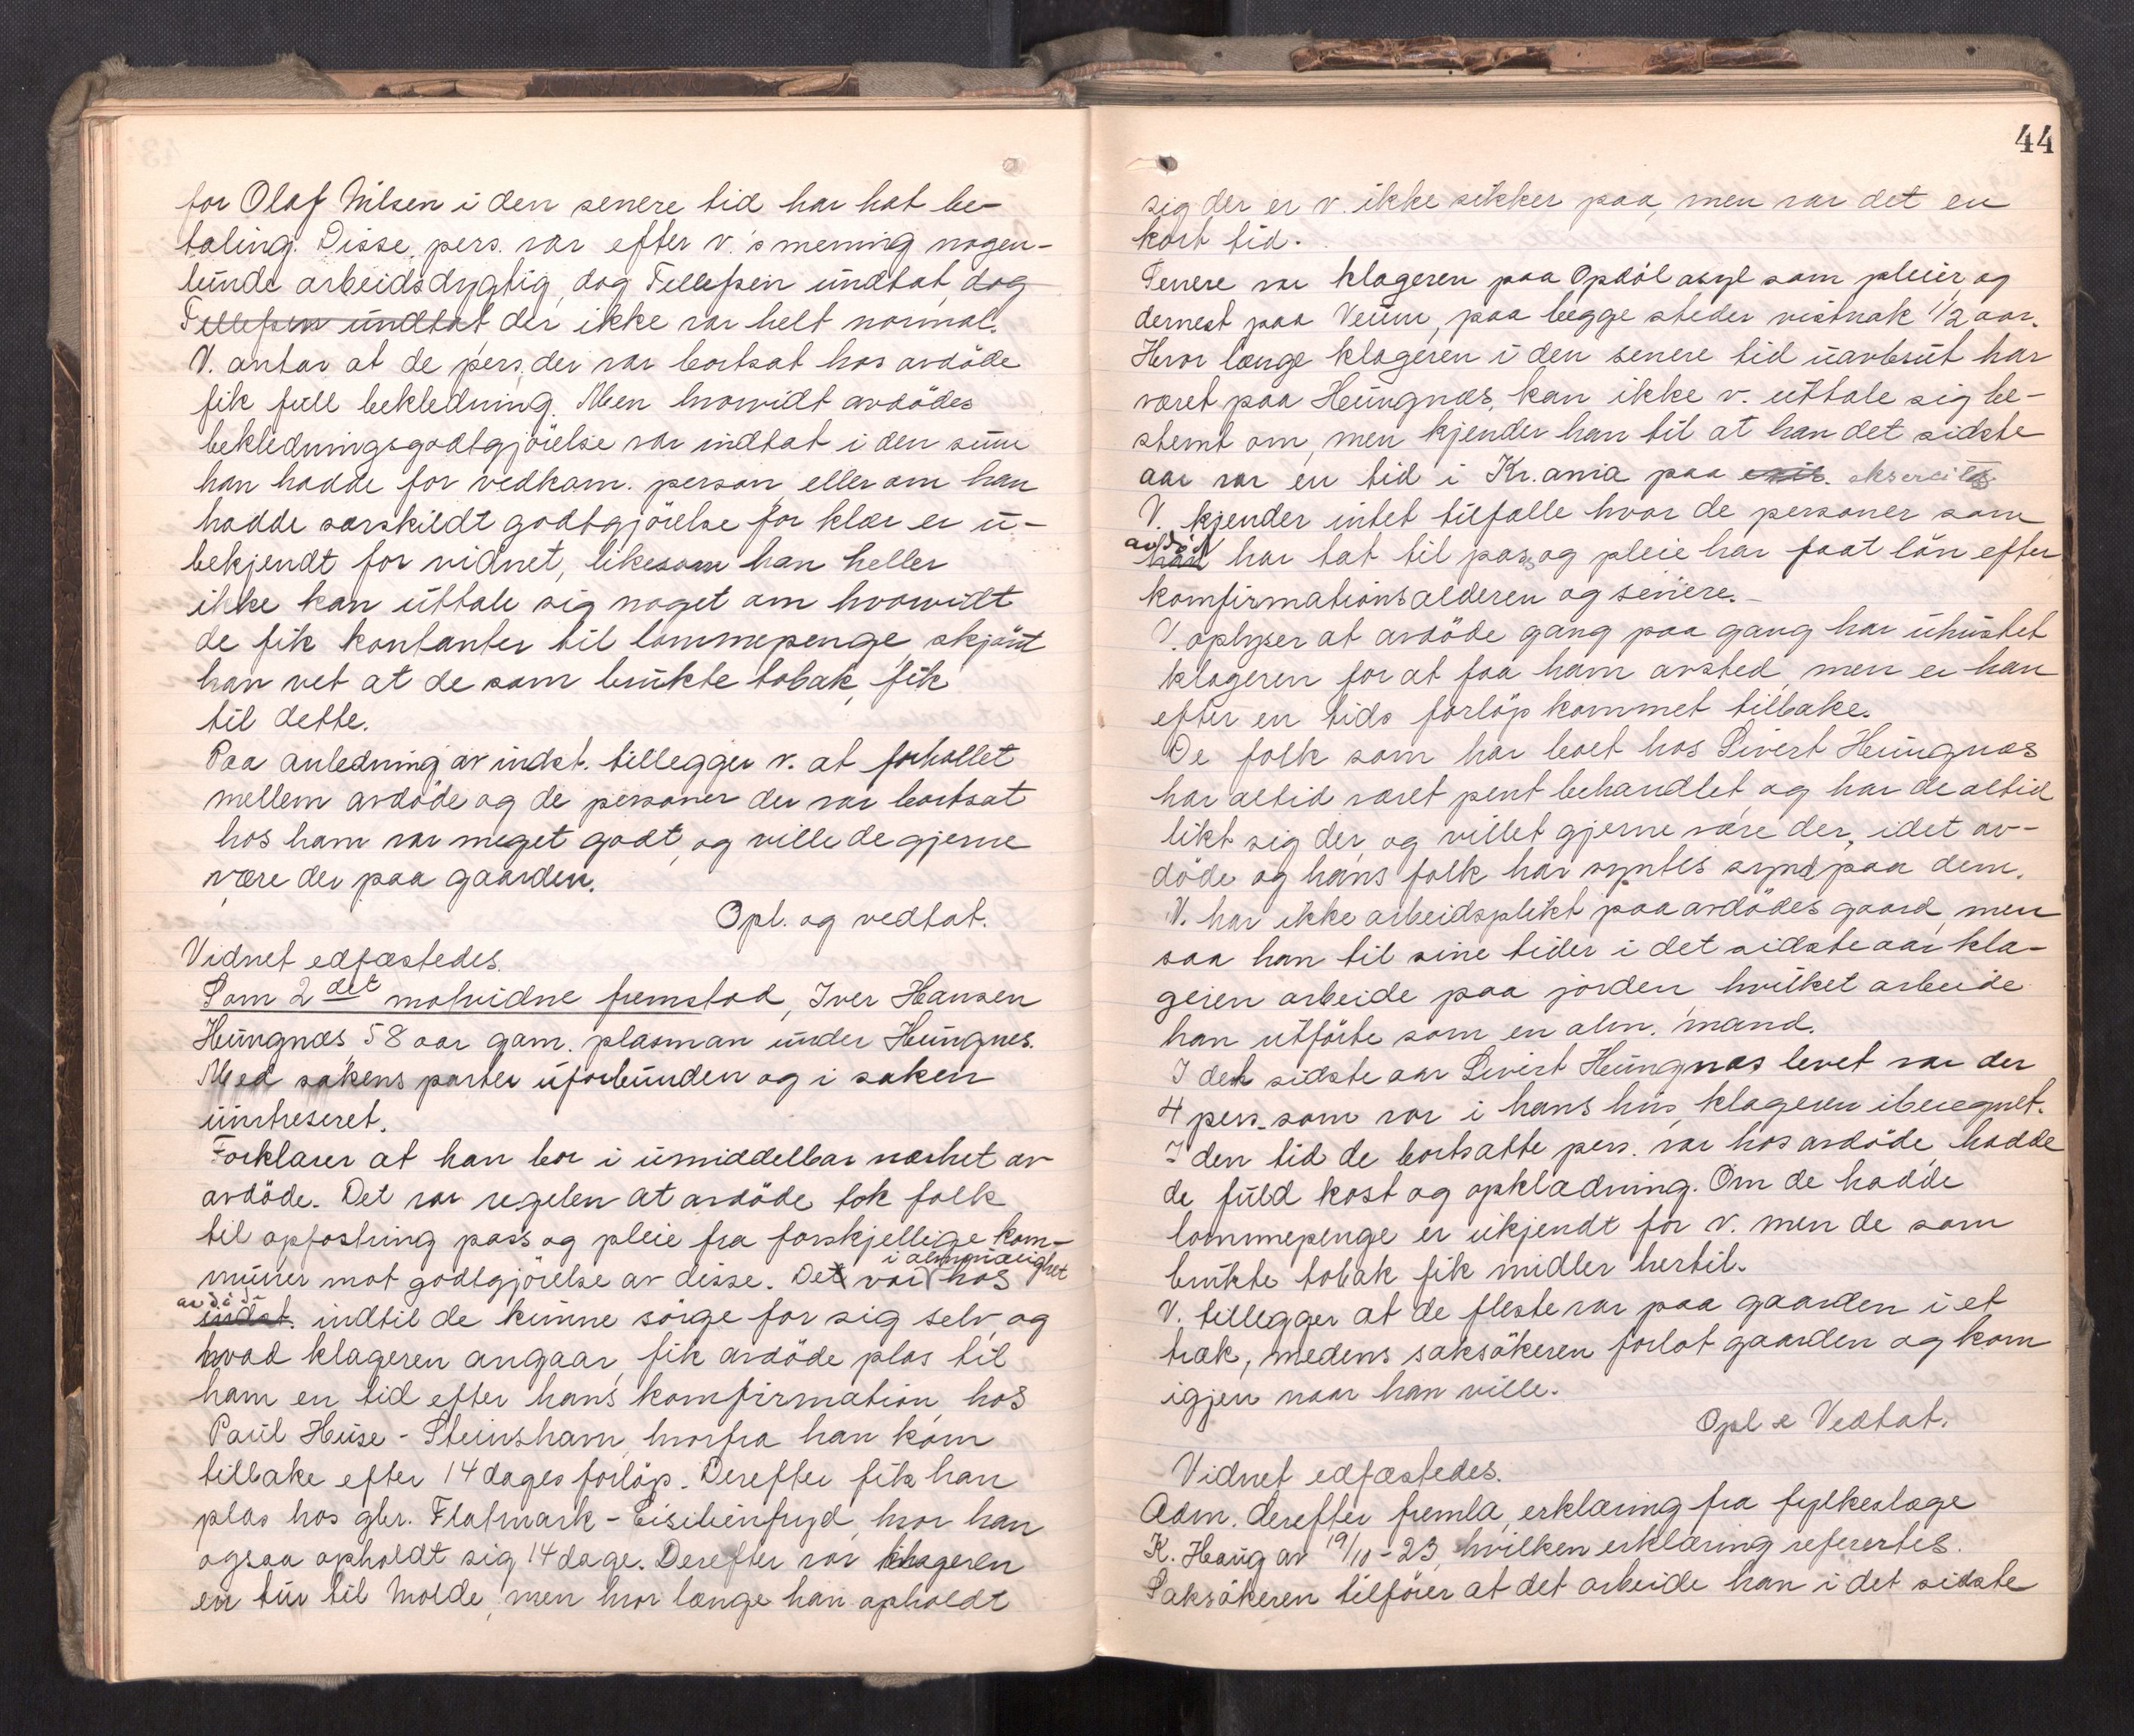 for Olaf Nilsen i den senere tid har hat be-
taling. Disse pers. var efter v.'s mening nogen-
lunde arbeidsdygtig, dog Tellefsen undtat, dog
Tellefsen undtat der ikke var helt normal.
V. antar at de pers. der var bortsat hos avdöde
fik full bekledning. Men hvorvidt avdödes
bekledningsgodtgjörelse var indtat i den sum
han hadde for vedkom. person, eller om han
hadde særskildt godtgjörelse for klær er u-
bekjendt for vidnet, likesom han heller
ikke kan uttale sig noget om hvorvidt
de fik kontanter til lommepenge, skjönt
han vet at de som brukte tobak, fik
til dette.
Paa anledning av indst. tillegger v. at forhollet
mellem avdöde og de personer der var bortsat
hos ham var meget godt, og ville de gjerne
være der paa gaarden.
Opl. og vedtat.
Vidnet edfæstedes.
Som 2det motvidne fremstod, Iver Hansen
Hungnæs 58 aar gam. plasman under Hungnes.
Med sakens parter uforbunden og i saken
untreseret.
Forklarer at han bor i umiddelbar nærhet av
avdöde. Det var regelen at avdöde tok folk
til opfostring pass og pleie fra forskjellige kom-
muner mot godtgjörelse av disse. Det var i almindelighet hos
avdöde indst. indtil de kunne sörge for sig selv, og
hvad klageren angaar, fik avdöde plas til
ham en tid efter hans komfirmation, hos
Paul Huse - Steinshavn, hvorfra han kom
tilbake efter 14 dages forlöp. Derefter fik han
plas hos gbr. Flatmark - Eisilienfryd, hvor han
ogsaa opholdt sig 14 dage. Derefter var klageren
en tur til Molde, men hvor længe han opholdt
44
sig der er v. ikke sikker paa, men var det en
kort tid.
Senere var klageren paa Opdöl asyl som pleier og
dernest paa Veum, paa begge steder vistnok 1/2 aar.
Hvor længe klageren i den senere tid uavbrut har
været paa Hungnæs, kan ikke v. uttale sig be-
stemt om, men kjender han til at han det sidste
aar var en tid i Kr.ania paa eksersits.
V. kjender intet tilfælle hvor de personer som
avdöd har tat til pass og pleie har faat lön efter
komfirmationsalderen og senere.
V. oplyser at avdöde gang paa gang har uhustet
klageren for at faa ham avsted, men er han
efter en tids forlöp kommet tilbake.
De folk som har boet hos Sivert Hungnæs
har altid været pent behandlet, og har de altid
likt sig der, og villet gjerne være der, idet av-
döde og hans folk har syntes synd paa dem.
V. har ikke arbeidsplikt paa avdödes gaard, men
saa han til sine tider i det sidste aar kla-
geren arbeide paa jorden, hvilket arbeide
han utförte som en alm. mand.
I det sidste aar Sivert Hungnæs levet var der
4 pers. som var i hans hus, klageren iberegnet.
I den tid de bortsatte pers. var hos avdöde, hadde
de fuld kost og opklædning. Om de hadde
lommepenge er ukjendt for v. men de som
brukte tobak fik midler hertil.
V. tillegger at de fleste var paa gaarden i et
træk, medens saksökeren forlot gaarden og kom
igjen naar han ville.
Opl & Vedtat.
Vidnet edfæstedes.
Adm. derefter fremla, erklæring fra fylkeslæge
K. Haug av 19/10 - 23, hvilken erklæring refererteS.
Saksökeren tilförer at det arbeide han i det sidste